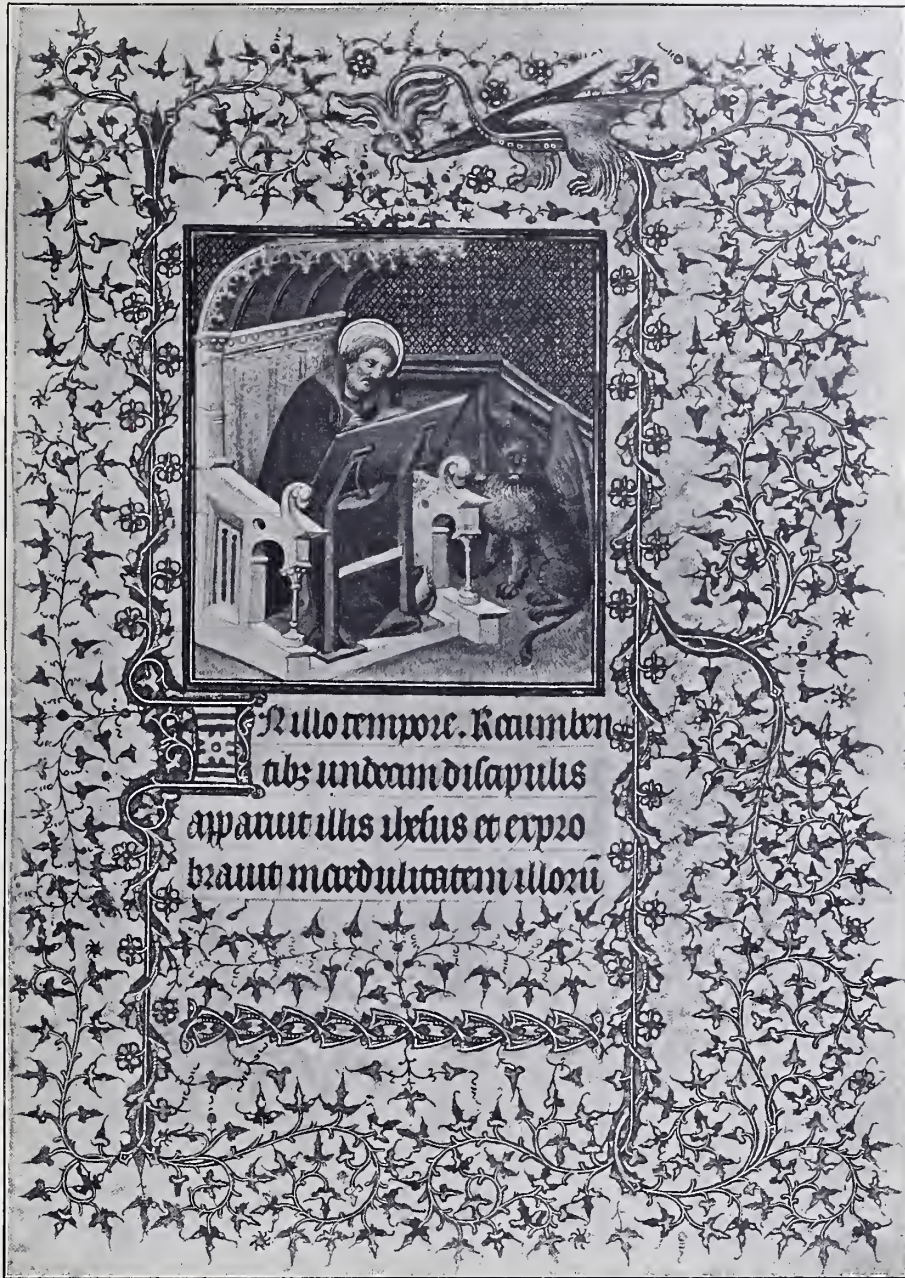 IN illo tempore. Recumben
tibꝫ undecim discipulis
apparuit illis ihesus et expro
brauit incredulitatem illorū